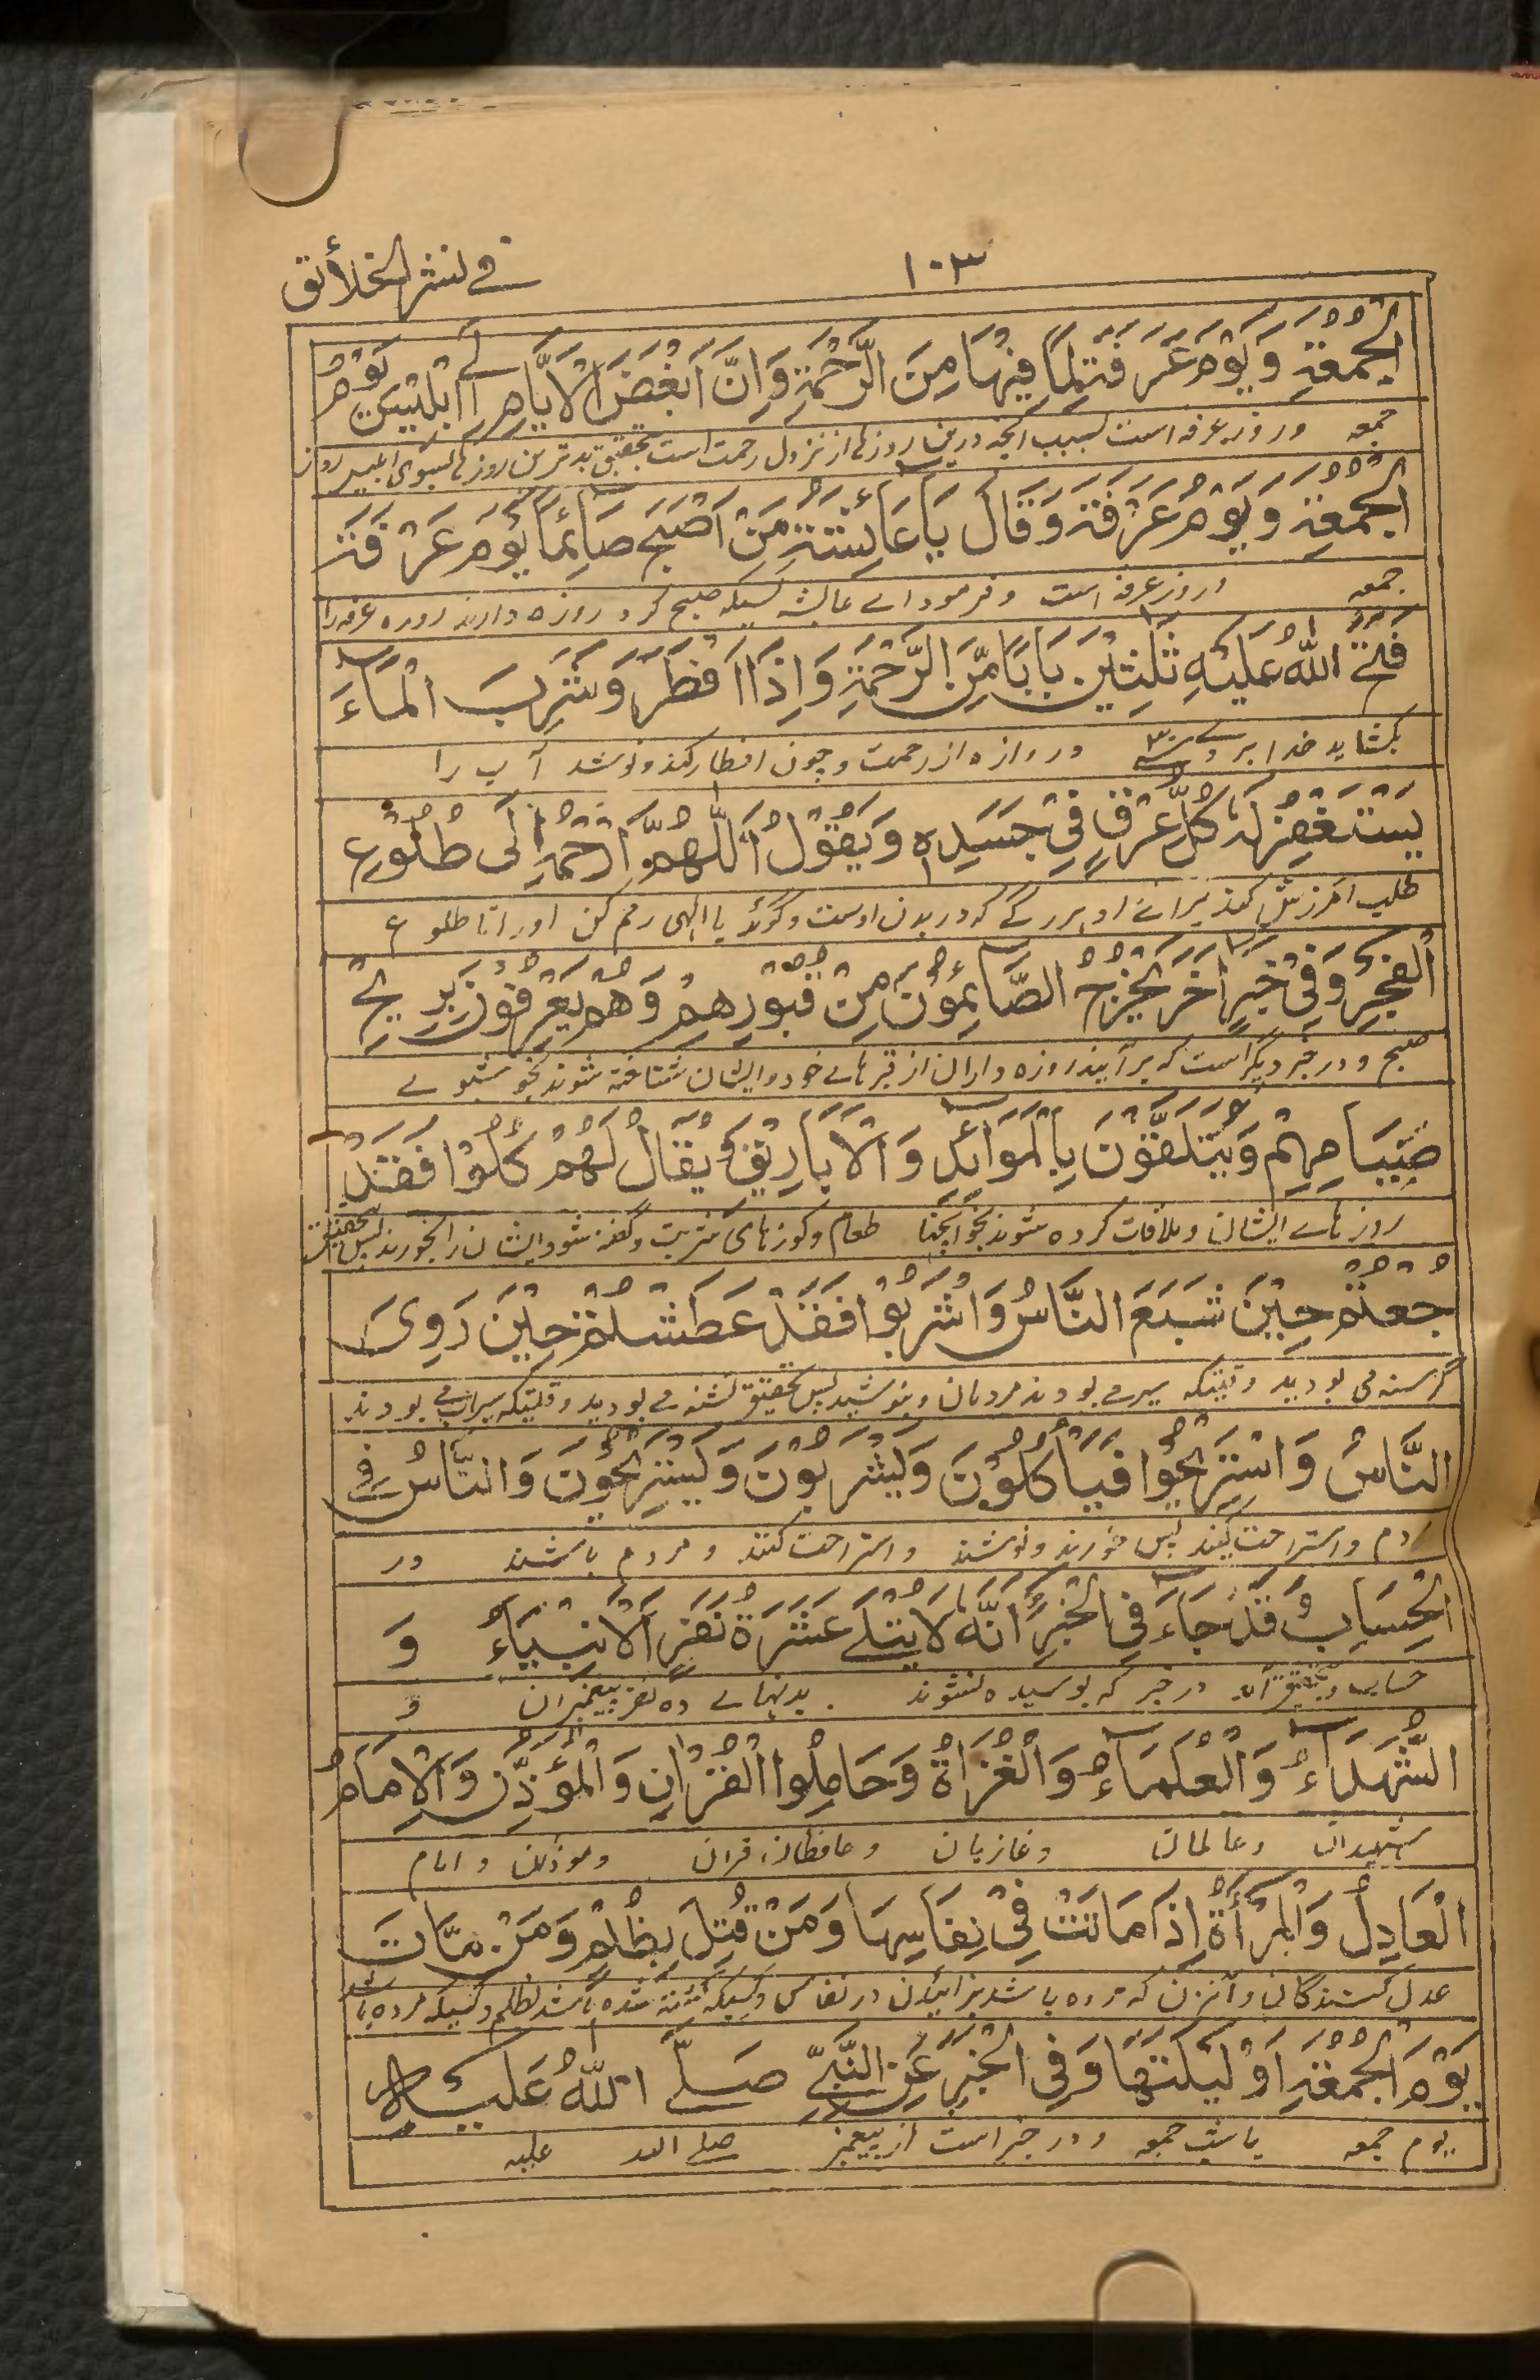 ١٠٣
في نشر الخلائق
الْجُمُعَةِ وَيَوْمُ عَرَفَةَ لِمَا فِيْهَا مِنَ الرَّحْمَةِ وَاِنَّ اَبْغَضَ الْاَيَّامِ اِلٰى اِبْلِيْسَ يَوْمُ
جمعه وروز عرفه است بسبب آنچه درین روزها از نزول رحمت است بتحقیق بدترین روزها بسوی ابلیس روز
الْجُمُعَةِ وَيَوْمُ عَرَفَةَ وَقَالَ يَا عَائِشَةُ مَنْ اَصْبَحَ صَائِمًا يَوْمَ عَرَفَةَ
جمعه وروز عرفه است و فرمود اے عائشه کسیکه صبح کرد روزه دارنده روزه عرفه را
فَتَحَ اللّٰهُ عَلَيْهِ ثَلٰثِيْنَ بَابًا مِّنَ الرَّحْمَةِ وَاِذَا اَفْطَرَ وَشَرِبَ الْمَاءَ
بکشاید خدا بر وے سی دروازه از رحمت و چون افطار کند و نوشد آب را
يَسْتَغْفِرُ لَهٗ كُلُّ عِرْقٍ فِيْ جَسَدِهٖ وَيَقُوْلُ اَللّٰهُمَّ ارْحَمْهُ اِلٰى طُلُوْعِ
طلب آمرزش کند براے او هر رگے که در بدن اوست و گوید یا الهی رحم کن او را تا طلوع
الْفَجْرِ وَفِيْ خَبَرٍ اٰخَرَ يُخْرَجُ الصَّائِمُوْنَ مِنْ قُبُوْرِهِمْ وَهُمْ يُعْرَفُوْنَ بِرِيْحِ
صبح و در خبر دیگر است که برآیند روزه داران از قبرهاے خود و ایشان شناخته شوند بخوشبوے
صِيَامِهِمْ وَيُتَلَقَّوْنَ بِالْمَوَائِدِ وَالْاَبَارِيْقِ وَيُقَالُ لَهُمْ كُلُوْا فَقَدْ
روزهاے ایشان و ملاقات کرده شوند بخوانچها طعام و کوزهای شربت و گفته شود ایشان را بخورند پس بتحقیق
جُعْتُمْ حِيْنَ شَبِعَ النَّاسُ وَاشْرَبُوْا فَقَدْ عَطَشْتُمْ حِيْنَ رَوِىَ
گرسنه می بودید وقتیکه سیر مے بودند مردمان و بنوشید پس بتحقیق تشنه مے بودید وقتیکه سیراب مے بودند
النَّاسُ وَاسْتَرِيْحُوْا فَيَأْكُلُوْنَ وَيَشْرَبُوْنَ وَيَسْتَرِيْحُوْنَ وَالنَّاسُ فِي
مردم و استراحت کنید پس خورند و نوشند و استراحت کنند و مردم باشند در
الْحِسَابِ قَدْ جَاءَ فِي الْخَبَرِ اَنَّهٗ لَا يَبْلٰى عَشَرَةُ نَفَرٍ اَلْاَنْبِيَاءُ وَ
حساب و بتحقیق آمد در خبر که بوسیده نشوند بدنهاے ده نفر پیغمبران و
الشُّهَدَاءُ وَالْعُلَمَاءُ وَالْغُزَاةُ وَحَامِلُوا الْقُرْاٰنِ وَالْمُؤَذِّنُ وَالْاِمَامُ
شهیدان و عالمان و غازیان و حافظان قران و موذنان و امام
الْعَادِلُ وَالْمَرْأَةُ اِذَا مَاتَتْ فِيْ نِفَاسِهَا وَمَنْ قُتِلَ بِظُلْمٍ وَمَنْ مَّاتَ
عدل کنندگان و آنزن که مرده باشد بزائیدن در نفاس و کسیکه کشته شده باشد بظلم و کسیکه مرده باشد
يَوْمَ الْجُمُعَةِ اَوْ لَيْلَتَهَا وَفِي الْخَبَرِ عَنِ النَّبِيِّ صَلَّى اللّٰهُ عَلَيْهِ
یوم جمعه یا شب جمعه و در خبر است از پیغمبر صلے الله علیه